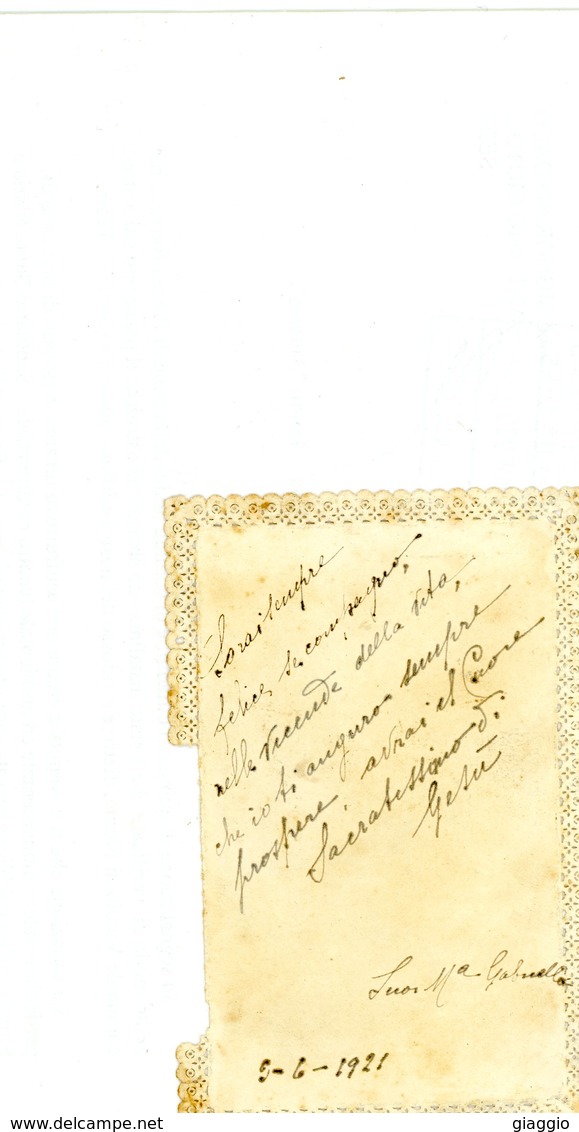 Sarai sempre
felice se compagno,
nelle vicende della vita,
che io ti auguro sempre
prospere, avrai il Cuore
Sacratissimo di
Gesù
Suor Mª Gabriella
5-6-1921
www.delcampe.net
giaggio